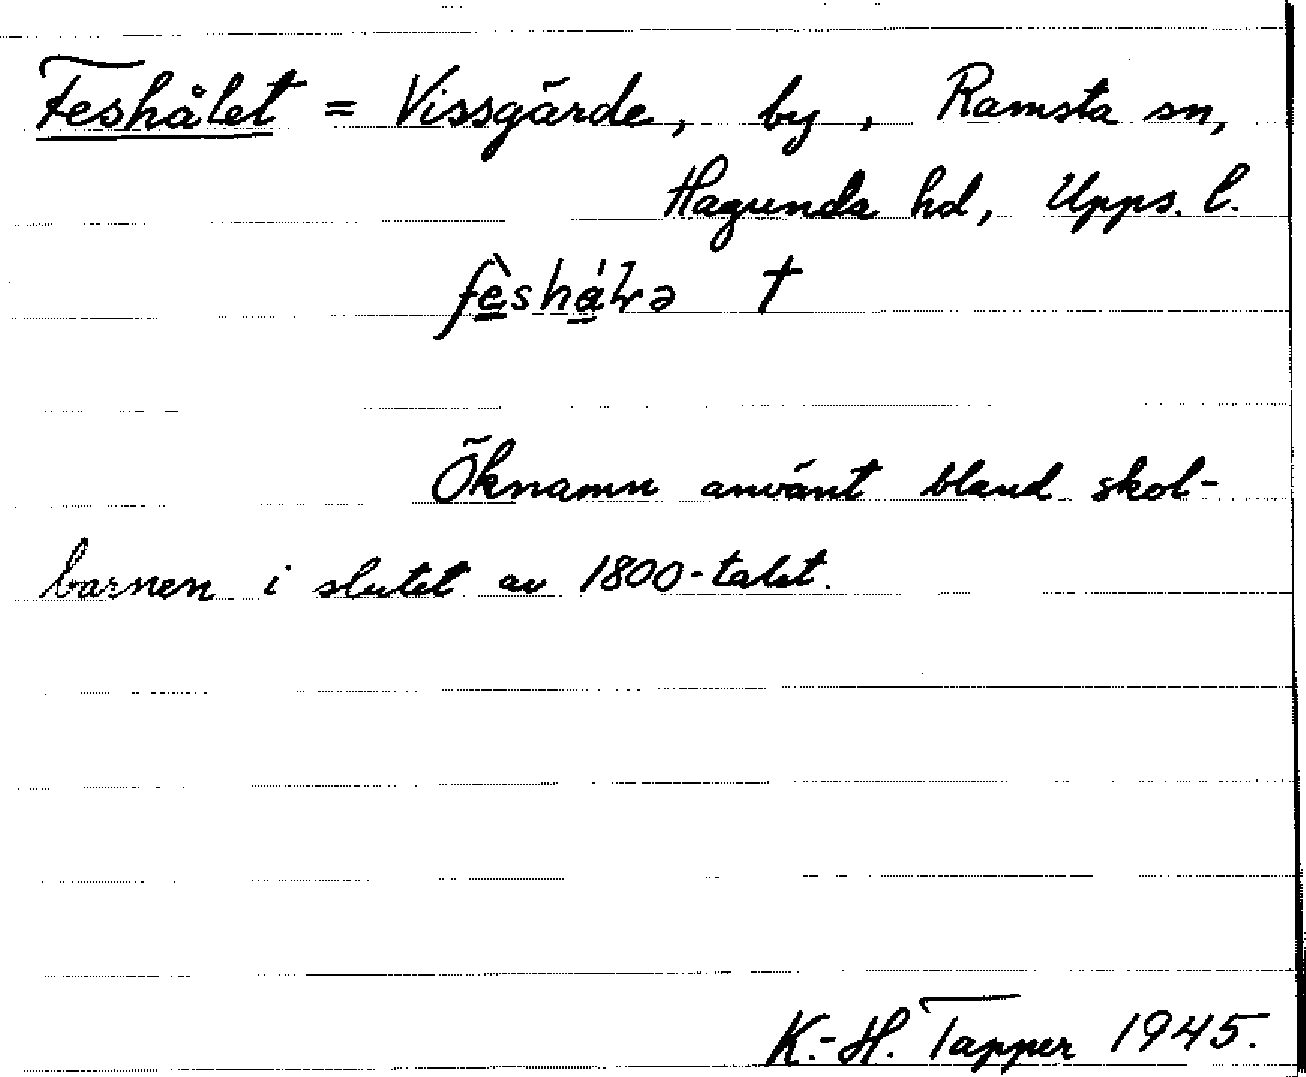 Feshålet = Vissgärde, by, Ramsta sn,
Hagunda hd, Upps. l.
†
Öknamn använt bland skol-
barnen i slutet av 1800-talet.
K.-H. Tapper 1945.